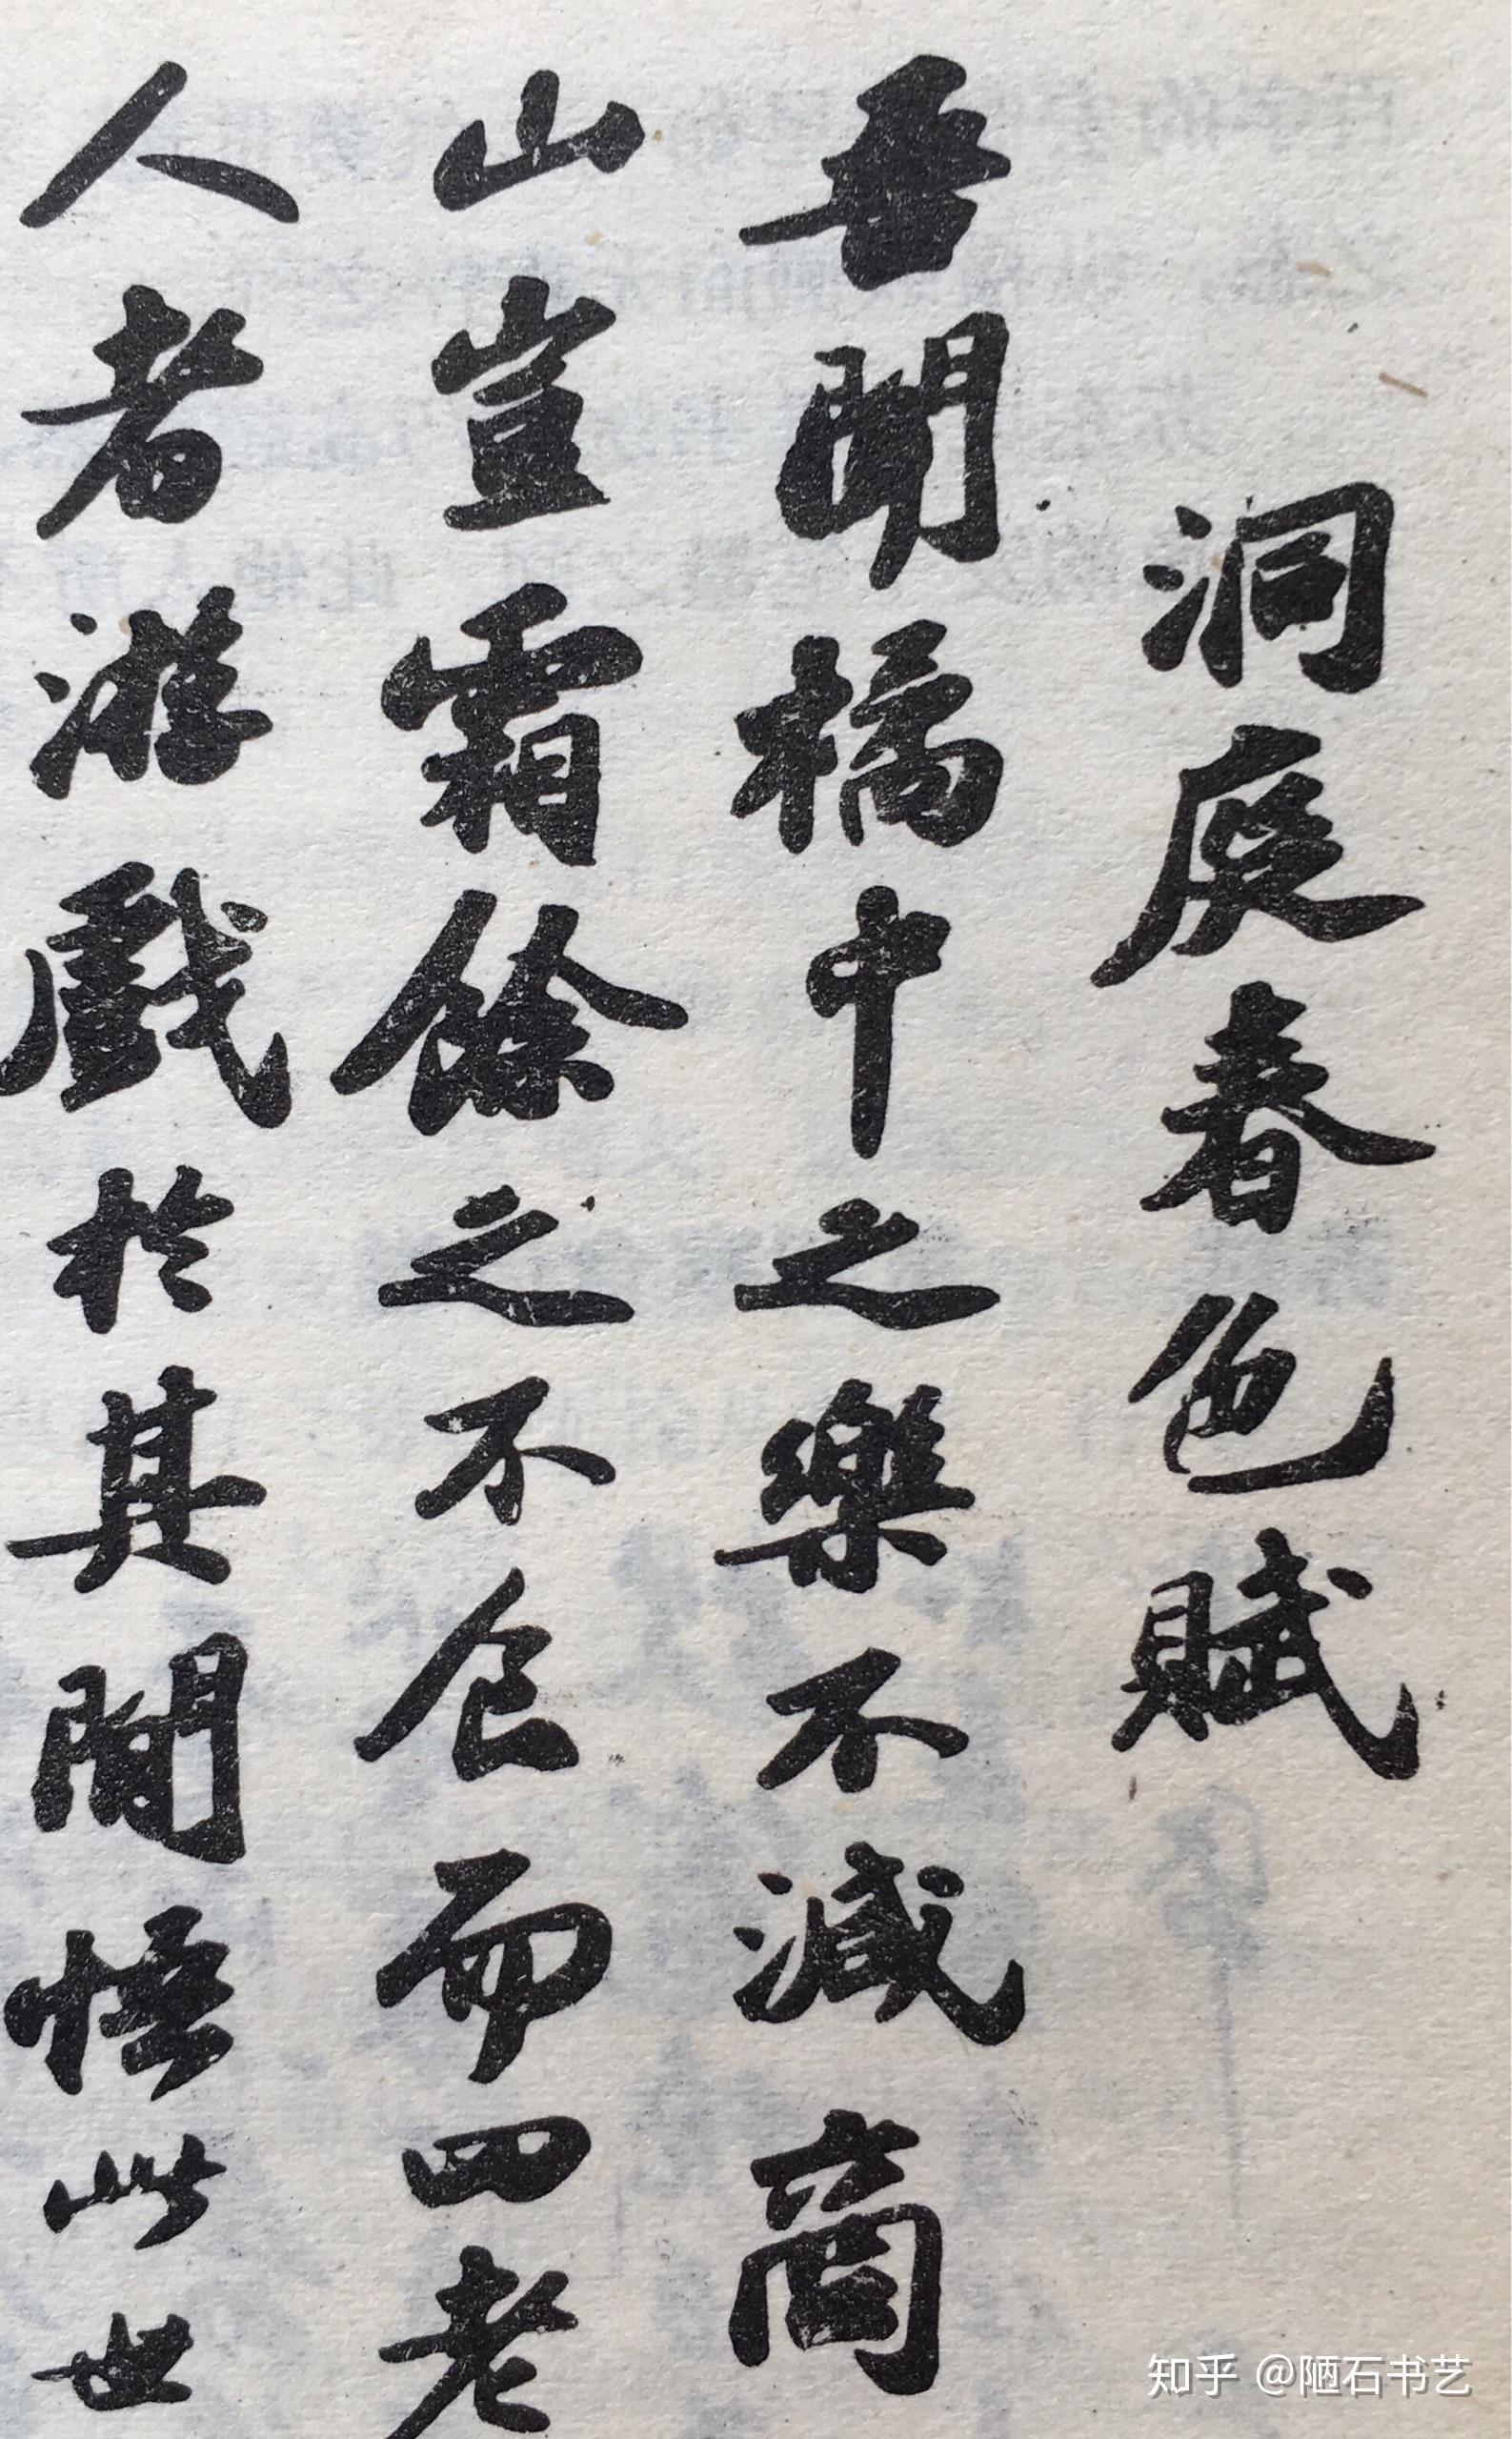 洞庭春色賦
吾聞橘中之樂不減商
山豈霜餘之不食而四老
人者游戲於其間悟此世
知乎 @陋石书艺